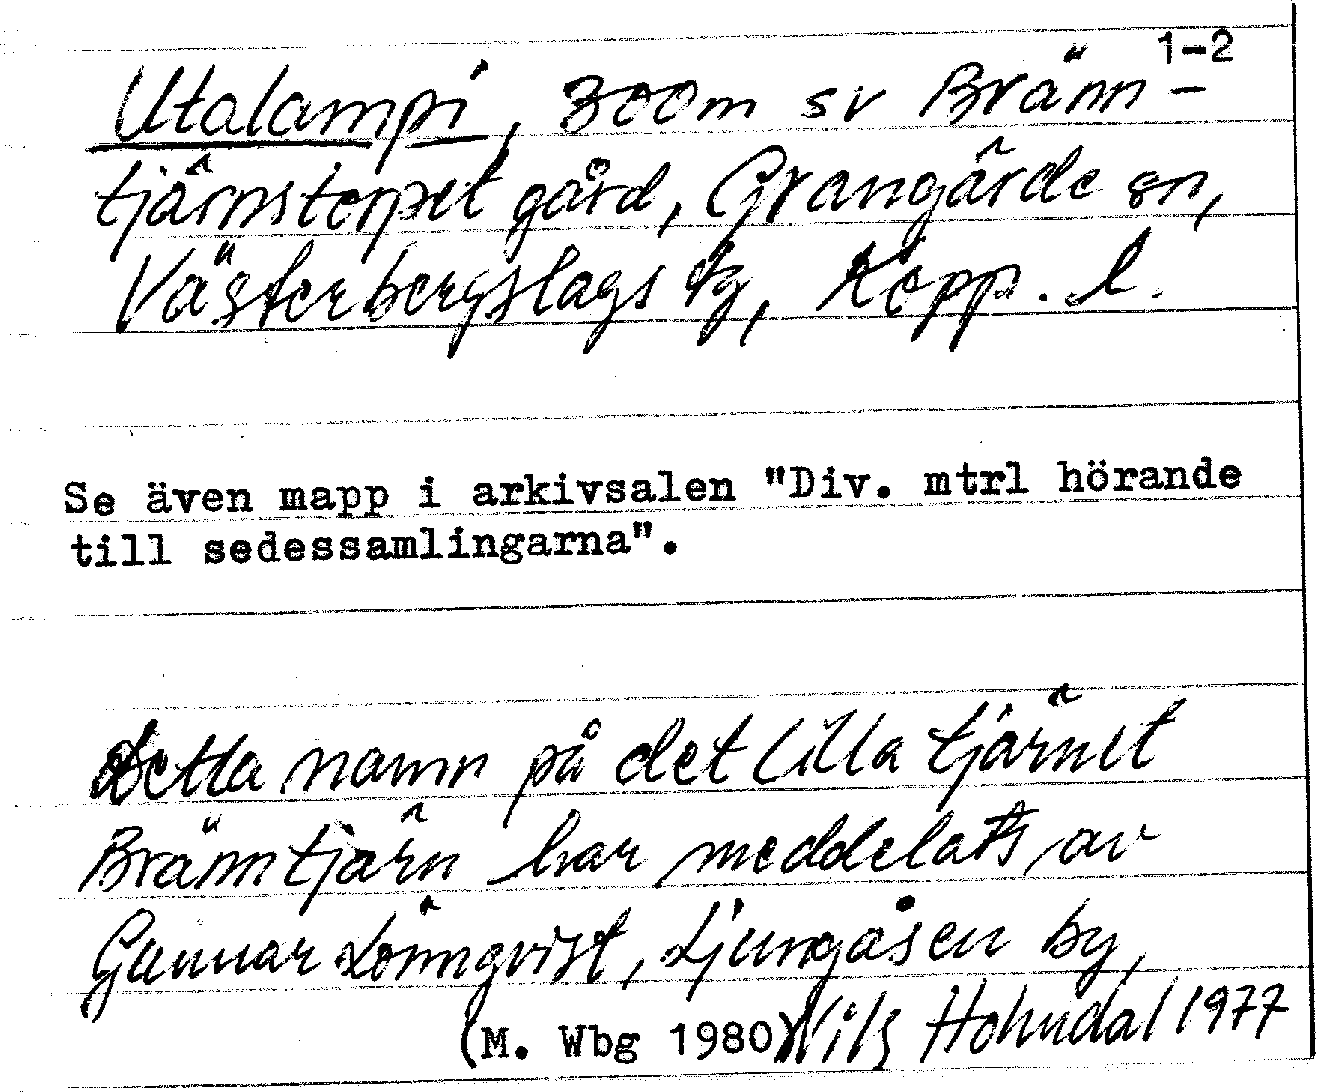 1-2
Utalampi, 300m sv Bränn-
tjärnstorpet gård, Grangärde sn,
Västerbergslags dg, Kopp. l.
Se även mapp i arkivsalen "Div. mtrl hörande
till sedessamlingarna".
Detta namn på det lilla tjärnet
Bränntjärn har meddelats av
Gunnar Lönnqvist, Ljungåsen by,
(M. Wbg 1980) Nils Hohndal 1977